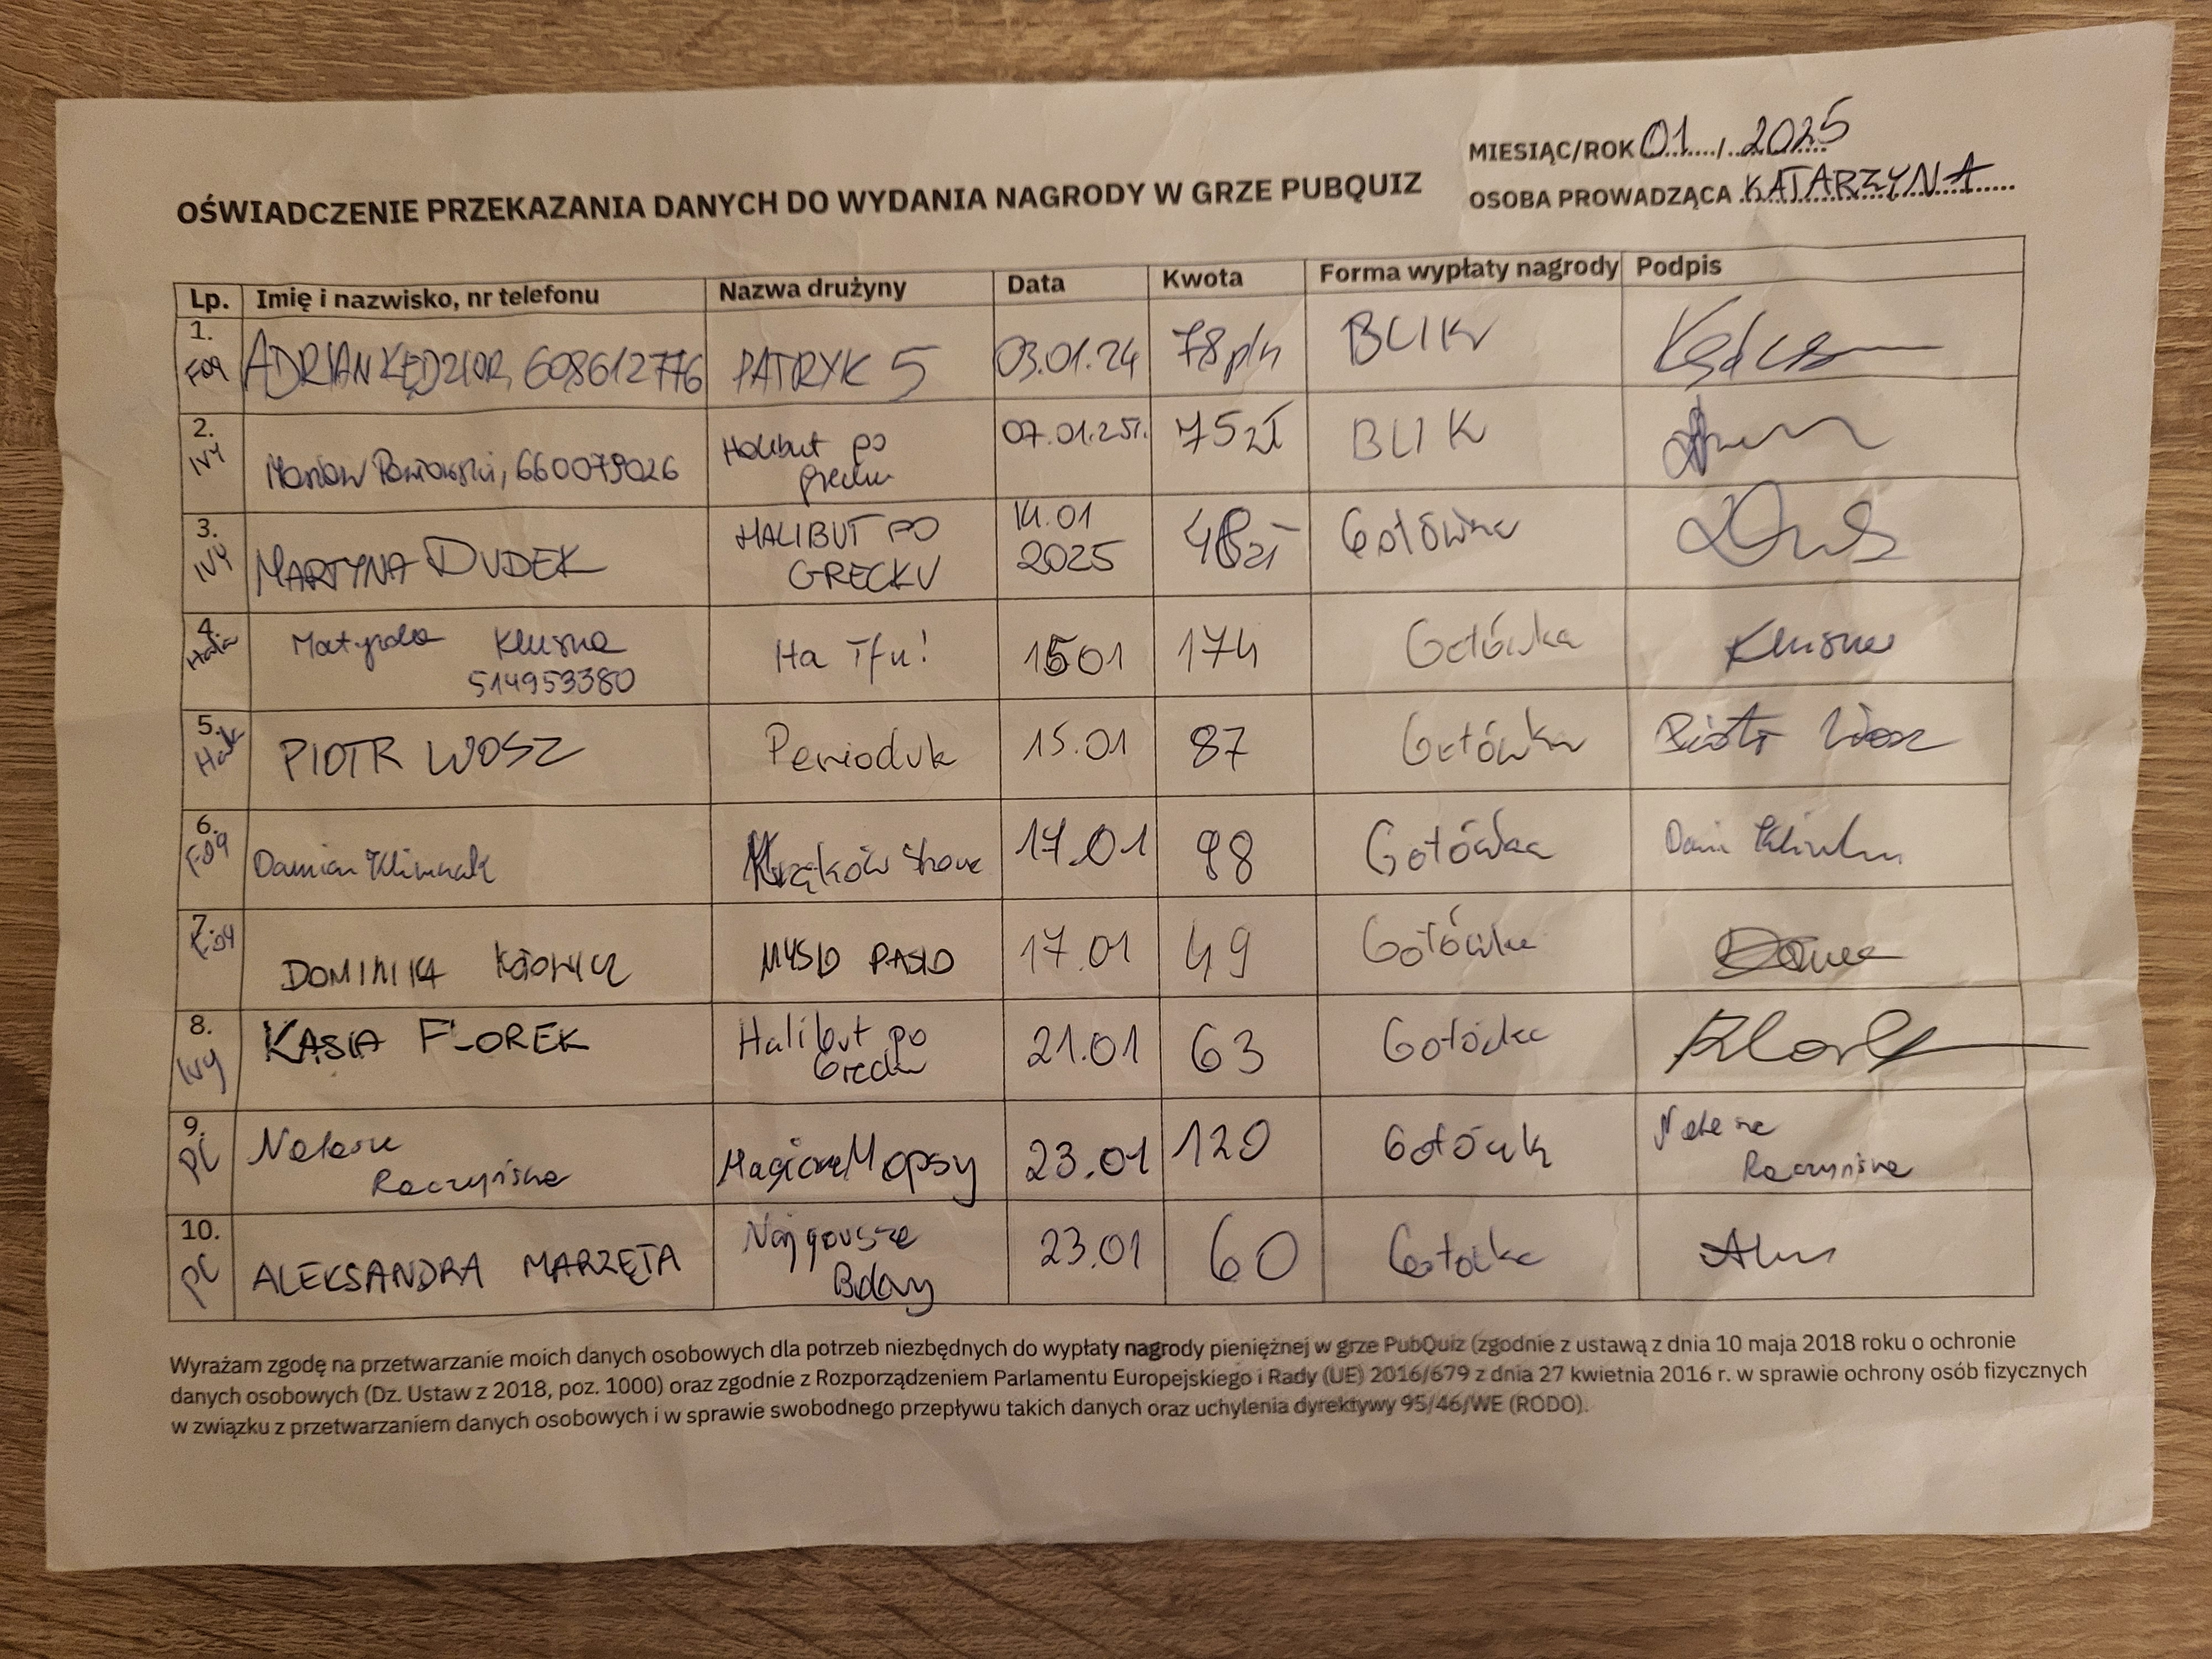 MIESIĄC/ROK 01 / 2025
OSOBA PROWADZĄCA KATARZYNA
OŚWIADCZENIE PRZEKAZANIA DANYCH DO WYDANIA NAGRODY W GRZE PUBQUIZ
Lp. Imię i nazwisko, nr telefonu Nazwa drużyny Data Kwota Forma wypłaty nagrody Podpis
1. ADRIAN KĘDZIOR, 608612776 PATRYK 5 03.01.24 78 pln BLIK
2. IVY 660079026 Halibut po grecku 07.01.25r. 75 zł BLIK
3. IVY MARTYNA DUDEK HALIBUT PO GRECKU 14.01 2025 48 zł Gotówka
4. Hala Matylda Klusna 514953380 Ha Tfu! 1501 174 Gotówka
5. Hala PIOTR WOSZ Perioduk 15.01 87 Gotówka Piotr Wosz
6. Damian Kraków 17.01 98 Gotówka
7. DOMINIKA MYSLO PASLO 17.01 49 Gotówka
8. Ivy KASIA FLOREK Halibut po Grecku 21.01 63 Gotówka
9. PC Raczyńska Mopsy 23.01 120 Gotówk Raczyńska
10. PC ALEKSANDRA MARZĘTA Najgorsze Bday 23.01 60 Gotówka
Wyrażam zgodę na przetwarzanie moich danych osobowych dla potrzeb niezbędnych do wypłaty nagrody pieniężnej w grze PubQuiz (zgodnie z ustawą z dnia 10 maja 2018 roku o ochronie
danych osobowych (Dz. Ustaw z 2018, poz. 1000) oraz zgodnie z Rozporządzeniem Parlamentu Europejskiego i Rady (UE) 2016/679 z dnia 27 kwietnia 2016 r. w sprawie ochrony osób fizycznych
w związku z przetwarzaniem danych osobowych i w sprawie swobodnego przepływu takich danych oraz uchylenia dyrektywy 95/46/WE (RODO).